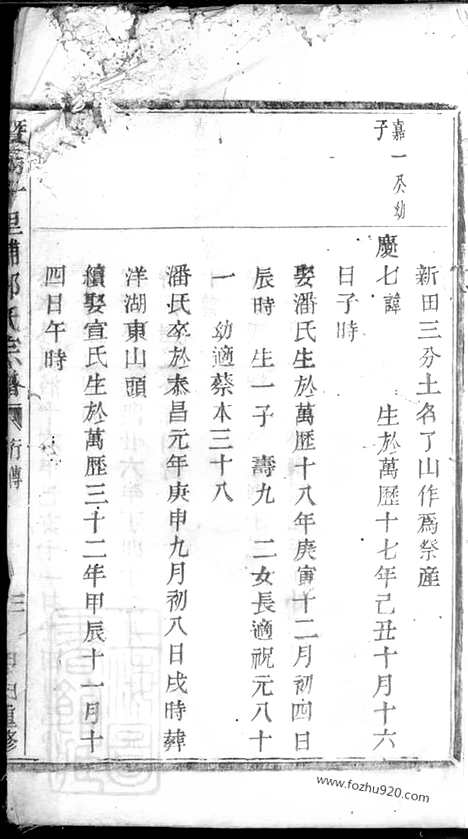 嘉一癸幼
子
新田三分土名了山作爲祭産
慶七諱　生於萬歷十七年己丑十月十六
日子時
娶潘氏生於萬歷十八年庚寅十二月初四日
辰時　生一子　壽九　二女長適祝元八十
一　幼適蔡木三十八
潘氏卒於泰昌元年庚申九月初八日戌時葬
洋湖東山頭
續娶宣氏生於萬歷三十二年甲辰十一月十
四日午時
里浦 氏宗譜 行傳
三
重修
www.fozhu920.com